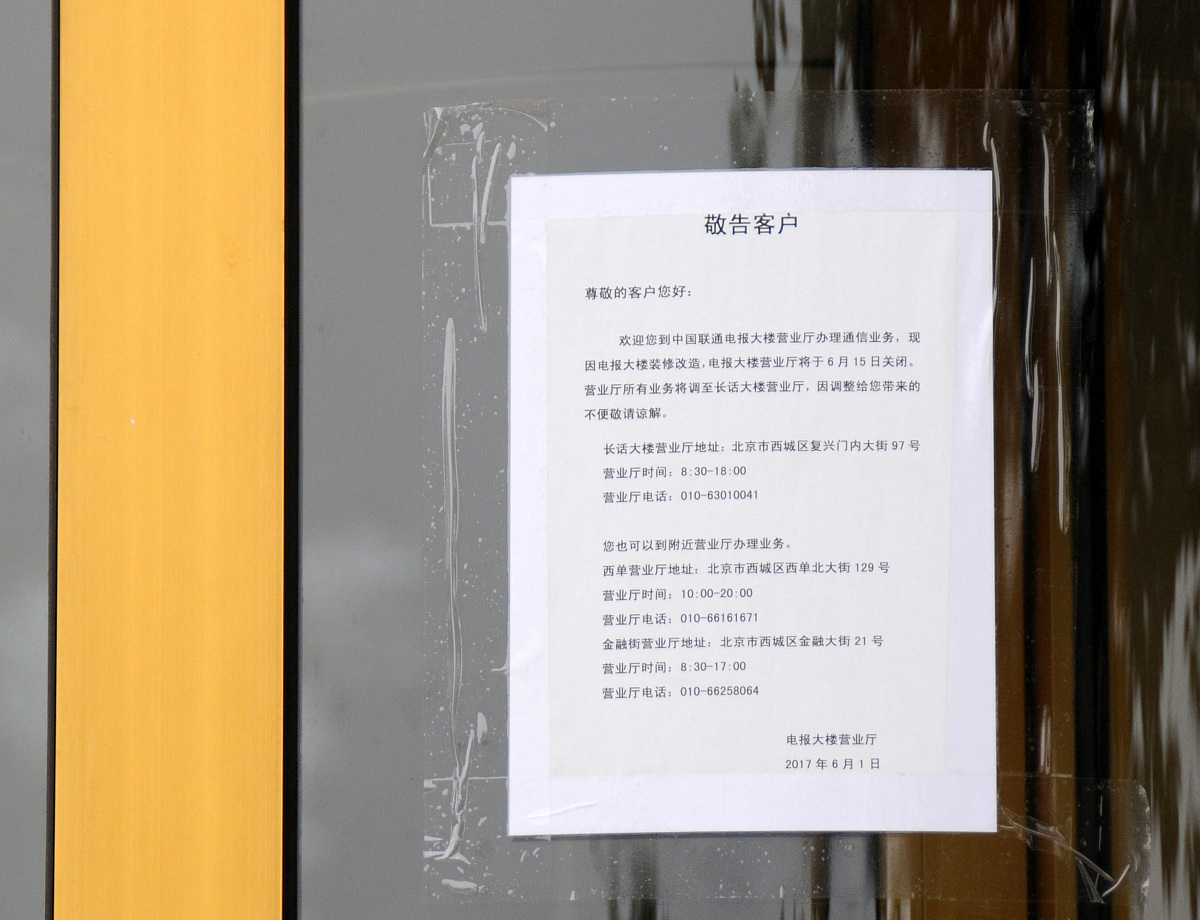 敬告客户
尊敬的客户您好：
欢迎您到中国联通电报大楼营业厅办理通信业务，现
因电报大楼装修改造，电报大楼营业厅将于 6 月 15 日关闭。
营业厅所有业务将调至长话大楼营业厅，因调整给您带来的
不便敬请谅解。
长话大楼营业厅地址：北京市西城区复兴门内大街 97 号
营业厅时间：8:30-18:00
营业厅电话：010-63010041
您也可以到附近营业厅办理业务。
西单营业厅地址：北京市西城区西单北大街 129 号
营业厅时间：10:00-20:00
营业厅电话：010-66161671
金融街营业厅地址：北京市西城区金融大街 21 号
营业厅时间：8:30-17:00
营业厅电话：010-66258064
电报大楼营业厅
2017 年 6 月 1 日